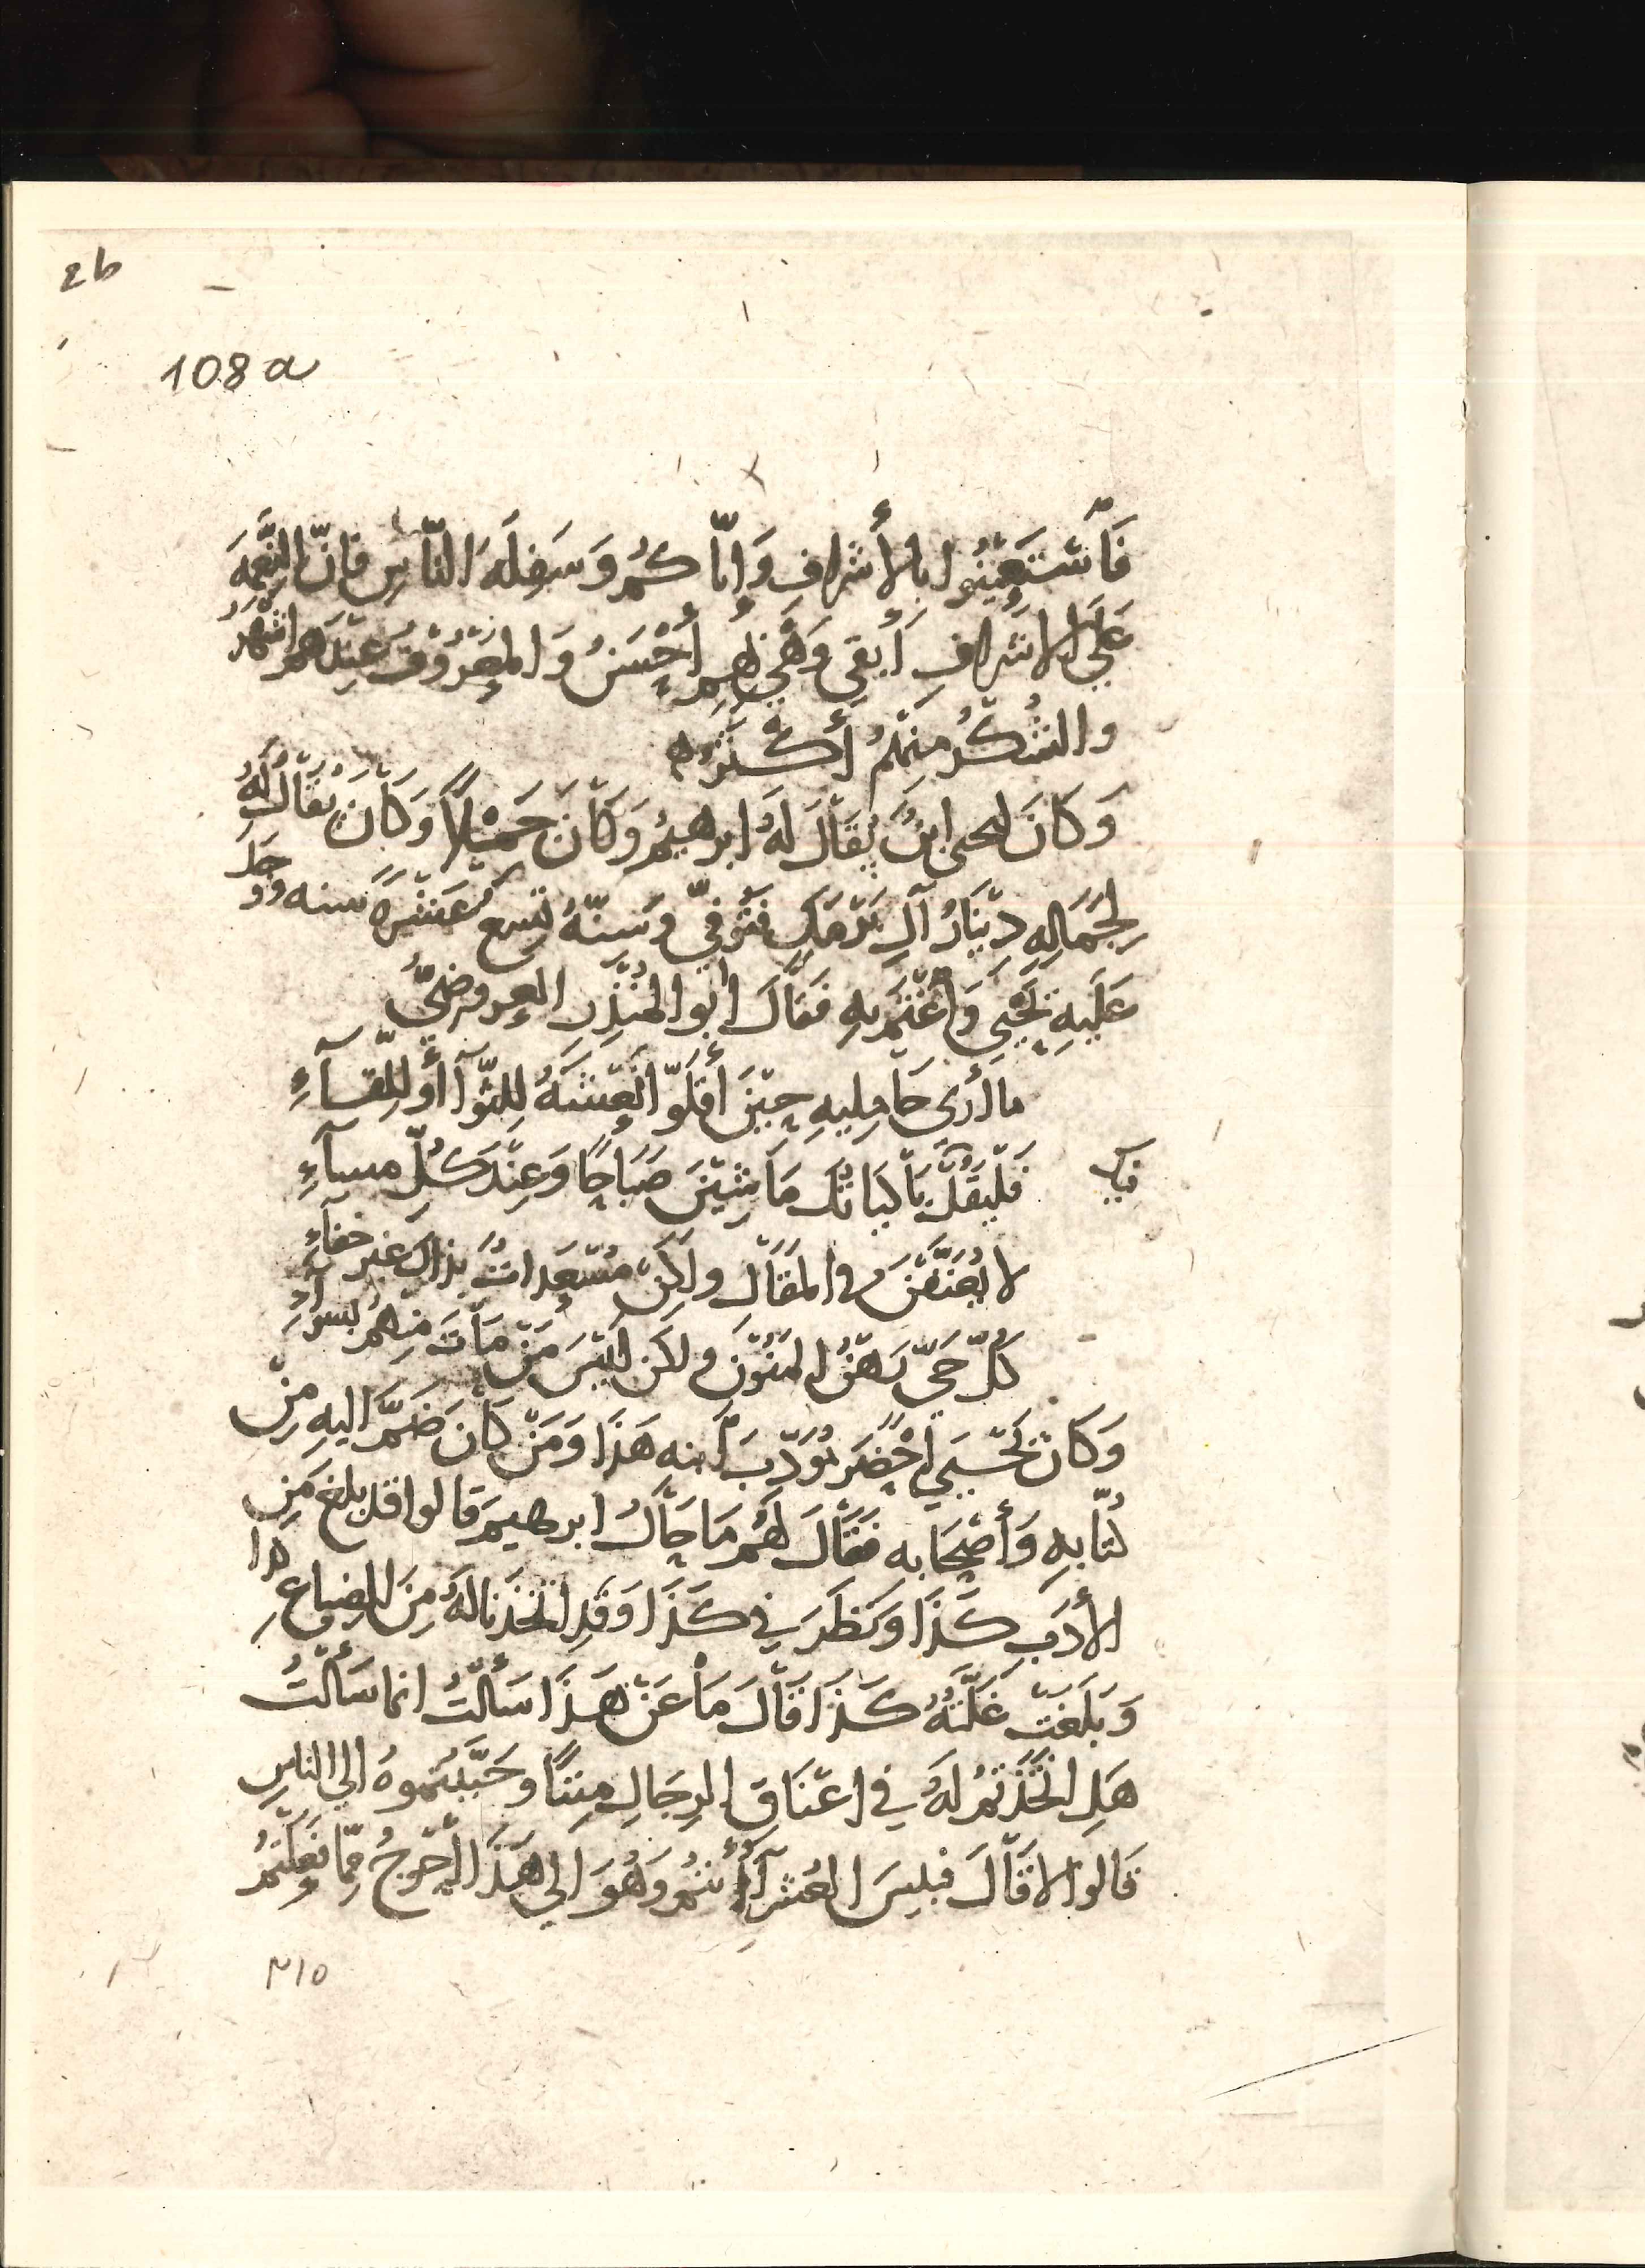 2b
108a
فَاسْتَعِيْنُوا بالأَشرافِ وَايّاكُم وَسَفِلَة النّاسِ فَانّ النِّعْمَهَ
عَلَى الاشْرافِ أَبقي وَهَِي بِهِم أَحْسَنُ وَالمَعْرُوْفَ عِنْدَهم اشْهَرُ
والشُكْرُ مِنْهُم أَكْثَرُ ه
وَكَانَ ليحيى ابنٌ يُقَالَ لَهُ ابرهيمُ وَكَاْنَ جَمْيلًا وَكَاْنَ يُقَاْلُ لَهُ
لِجَمَالِهِ دِيْنَارُ آلِ بَرْمَكِ فتُوفيّ وَسِنّهُ تِسع عَشْرَةَ سنه وَوَجَدَ
عَلَيهِ يَحْيَى وَاغْتَمَّ بِهِ فَقَاْلَ ابُو المُنْذِرِ العروضيُّ
ما أَرى حَامِليهِ حِيْنَ أَقَلّوا نَعْشَهُ لِلثّوَآ أَوْ لِلِقآءِ
فَلْيَقُلْ بَاْكيَاتُكَ مَا شِيْنَ صَبَاحًا وَعِنْدَ كُلِّ مسآءِ
لا يُعَنَّفْنَ في المَقَاْلِ ولَكِنْ مُسْعَداتٌ بذاكَ غير خفآءِ
كُلّ حَيّ رَهْنُ المَنُوْنِ ولكن لَيْسَ مَنْ مَاْتَ مِنهُم بسوآءِ
وَكَاْنَ يَحْيَي أَحْضَرَ مُؤَدّبَ ابنه هَذَا وَمَنْ كَاْنَ ضَمَّ اليهِ مِنْ
كُتّابِهِ وَأَصْحَابه فَقَاْلَ لَهُم مَا حَاْلُ ابرهيمَ قَالوا قد بلغ مِن
الأَدَبِ كَذَا وَنَظَرَ في كَذَا وَقَد اتّخَذنا لَهُ مِنَ الضياعِ كذا
وَبَلَغَتْ غَلّتُهُ كَذَا قَاْلَ مَا عَنْ هَذَا سَأَلْتُ انما سَأَلْتُ
هَلِ اتّخَذْتُم لَهُ في اعْنَاقِ الرِجَالِ مِننًا وَحَبَّبْتُموهُ الى الناسِ
قَالوا لا قَاْلَ فبئِسَ العُشَرآءُ أَنتُم وَهُوَ الى هَذَا أَحْوَجُ مِمّا فَعَلتُم
٢١٥